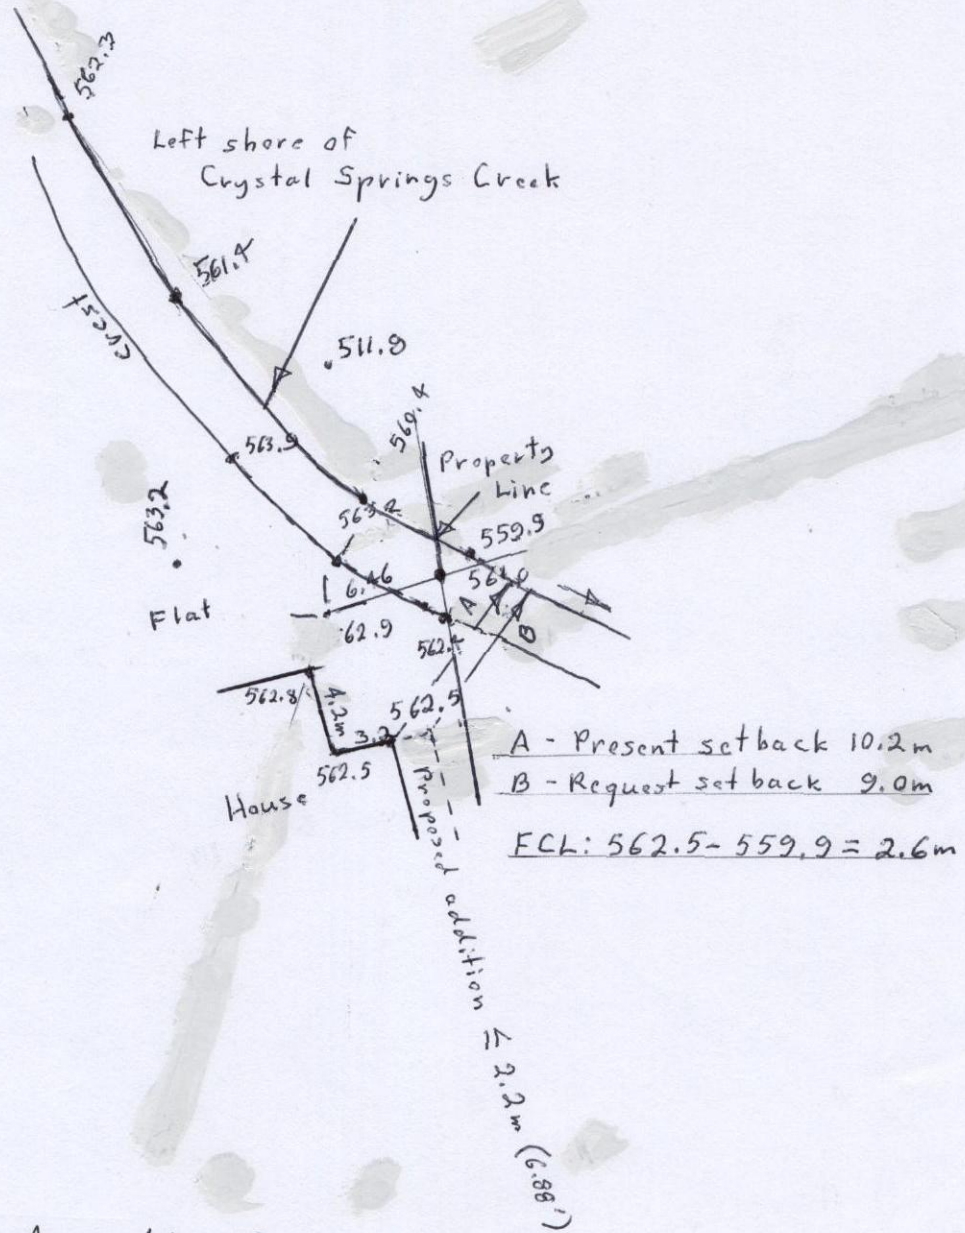 562.3
Left shore of
Crystal Springs Creek
561.4
crest
511.8
563.9
560.4
Property
Line
563.2
563.2
559.9
6.46
A
B
Flat
62.9
562.8
4.2m
562.5
562.5
House
A - Present setback 10.2m
B - Request setback 9.0m
FCL: 562.5 - 559.9 = 2.6m
Proposed addition ≤ 2.2m (6.88')